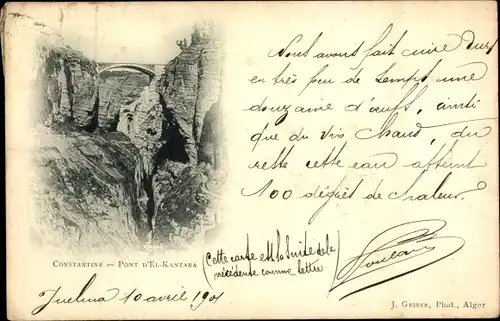 Nous avons fait cuire dur
en très peu de temps une
douzaine d'œufs, ainsi
que du vin chaud, du
reste cette eau atteint
100 degrés de chaleur.
(Cette carte est la suite de la
précédente comme lettre)
Poulain
CONSTANTINE — PONT D'EL-KANTARA
Guelma 10 avril 1901
J. GEISER, Phot., Alger